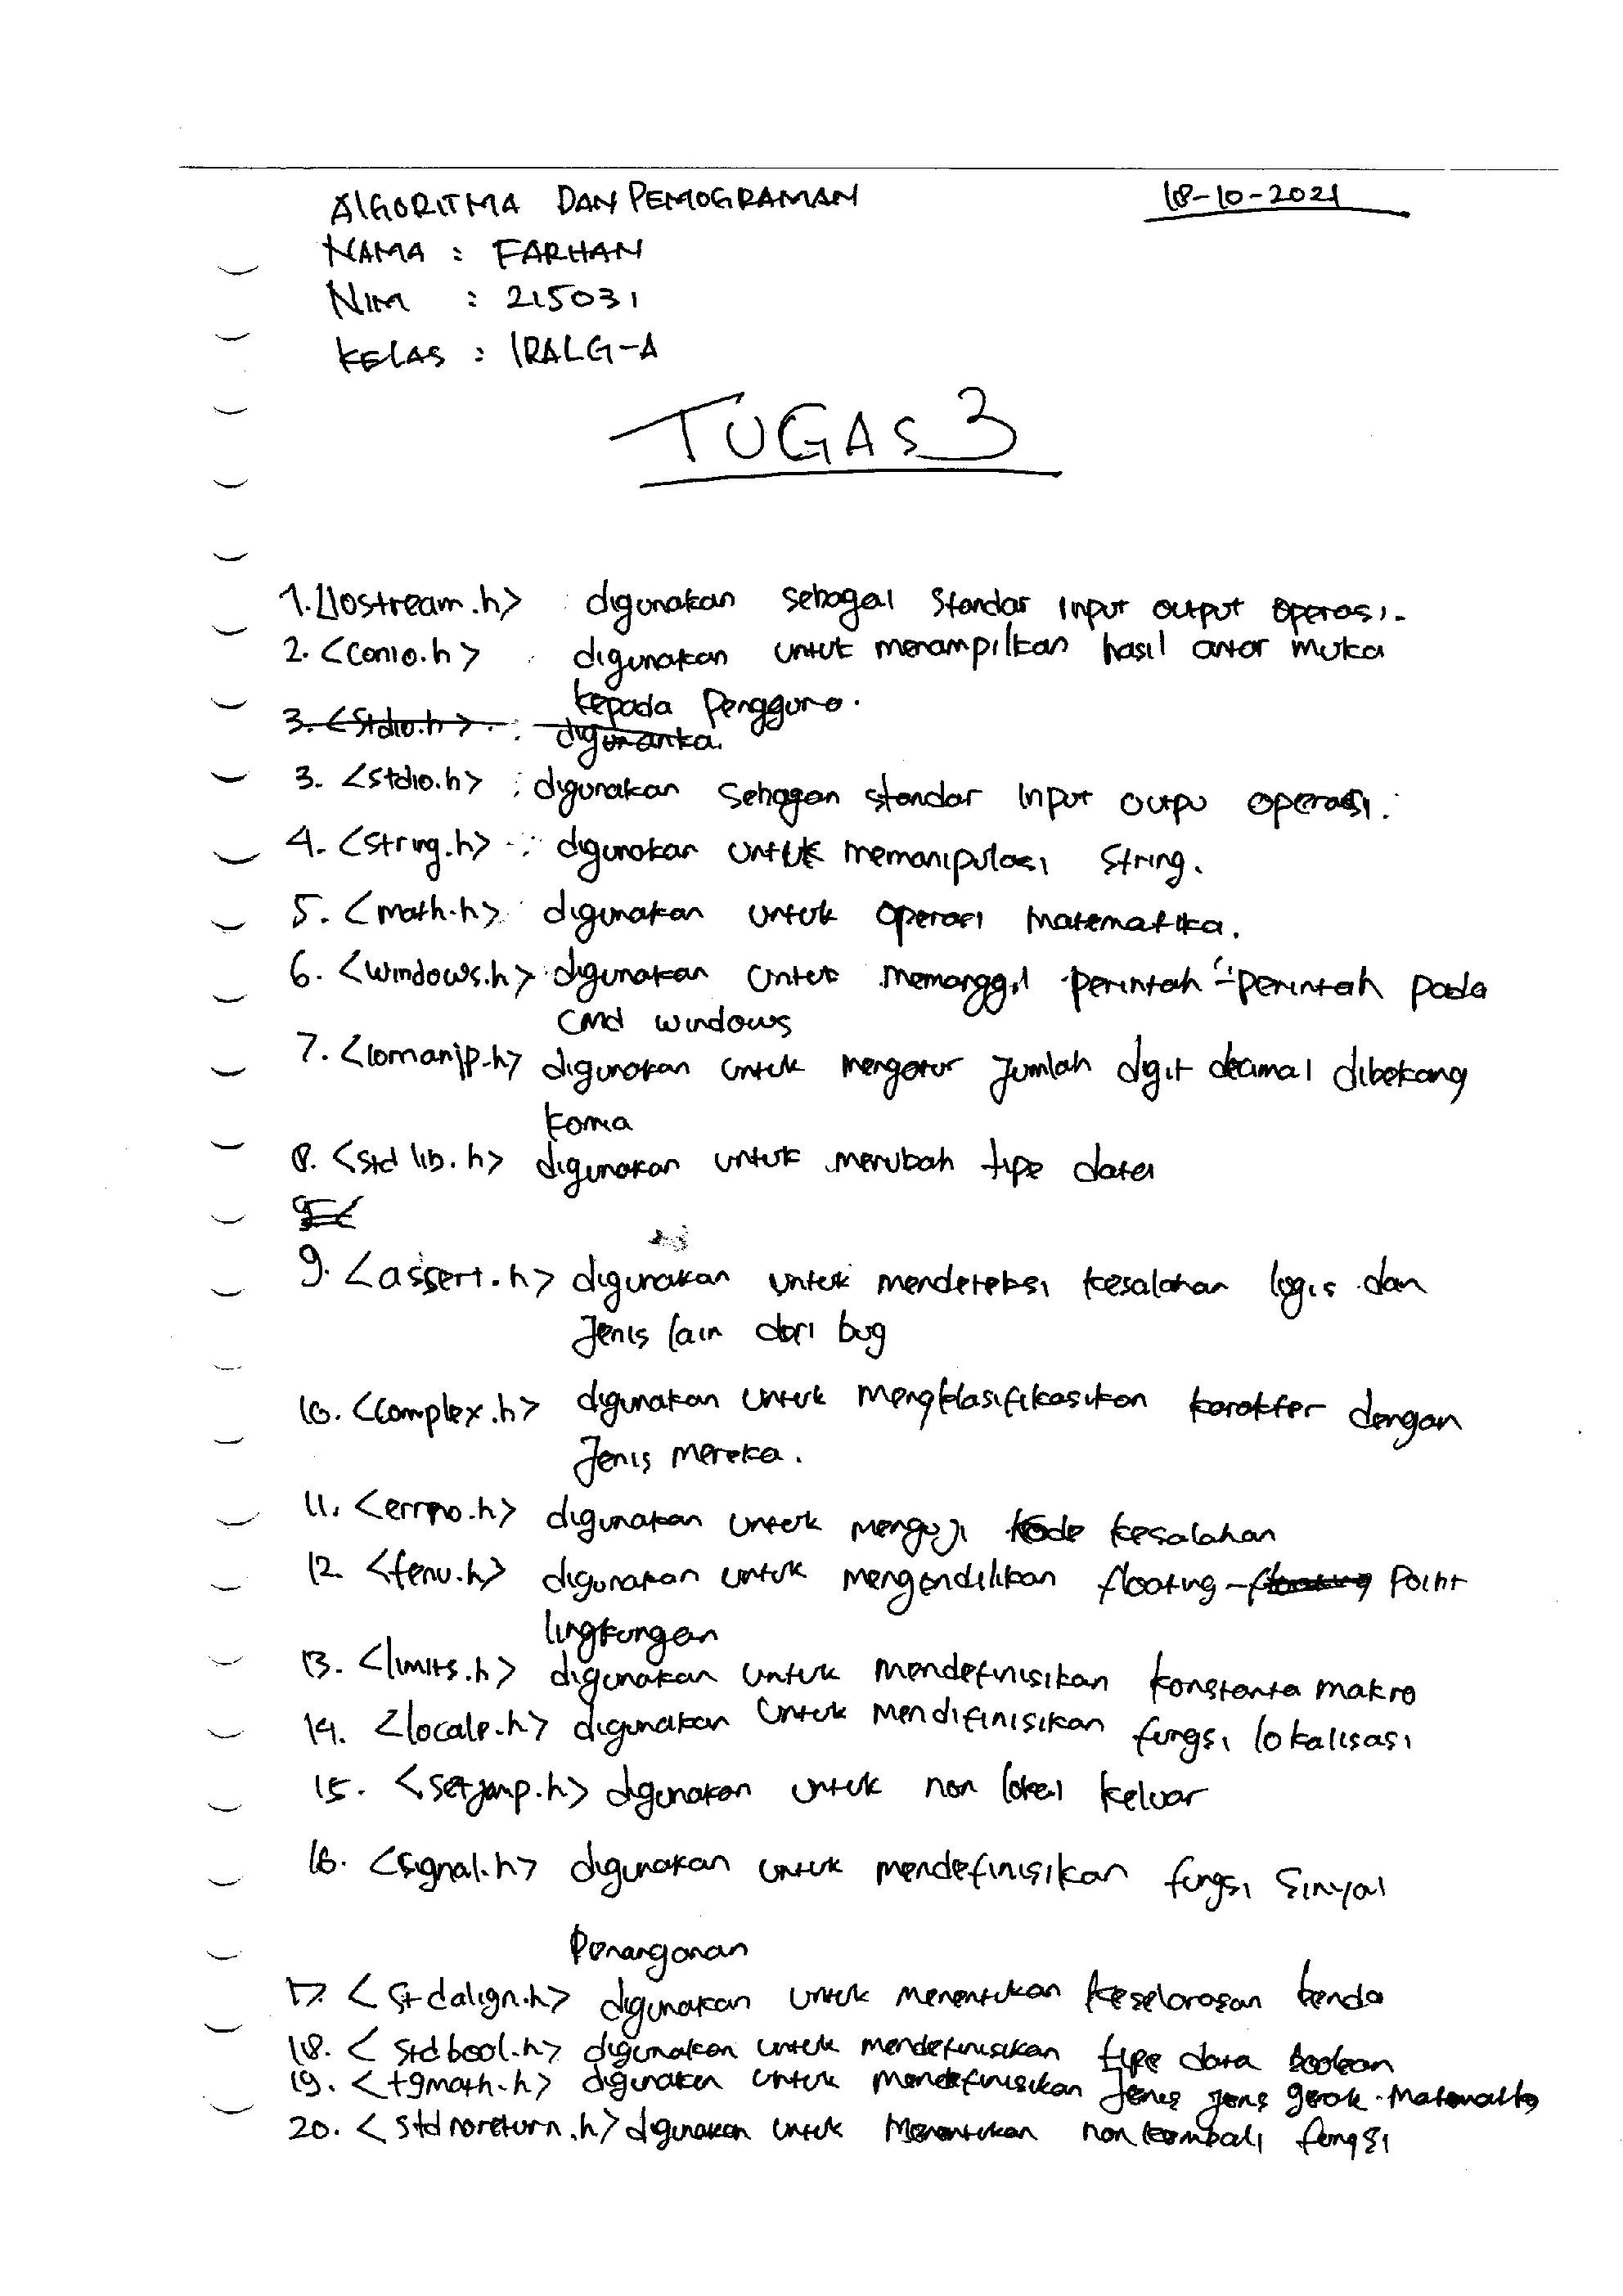 ALGORITMA DAN PEMOGRAMAN 18-10-2021
NAMA : FARHAN
NIM : 215031
KELAS : IRALG-A
TUGAS 3
1. <Iostream.h> : digunakan sebagai standar input output operasi.
2. <conio.h> : digunakan untuk menampilkan hasil antar muka
kepada pengguna.
3. <stdio.h> : digunanka.
3. <stdio.h> : digunakan sebagan standar input outpu operasi.
4. <string.h> : digunakan untuk memanipulasi string.
5. <math.h> : digunakan untuk operasi matematika.
6. <windows.h> : digunakan untuk memanggil perintah - perintah pada
CMD windows
7. <iomanip.h> digunakan untuk mengatur jumlah digit decimal dibekang
koma
8. <std lib.h> digunakan untuk merubah tipe data
9. <
9. <assert.h> digunakan untuk mendeteksi kesalahan logis dan
jenis lain dari bug
10. <complex.h> digunakan untuk mengklasifikasikan karakter dengan
jenis mereka.
11. <errno.h> digunakan untuk menguji kode kesalahan
12. <fenv.h> digunakan untuk mengendalikan floating - floating point
lingkungan
13. <limits.h> digunakan untuk mendefinisikan konstanta makro
14. <locale.h> digunakan untuk mendifinisikan fungsi lokalisasi
15. <setjmp.h> digunakan untuk non lokal keluar
16. <signal.h> digunakan untuk mendefinisikan fungsi sinyal
Penanganan
17. <stdalign.h> digunakan untuk menentukan keselarasan benda
18. <stdbool.h> digunakan untuk mendefinisikan tipe data boolean
19. <tgmath.h> digunakan untuk mendefinisikan jenis jenis gerak matematika
20. <stdnoreturn.h> digunakan untuk menentukan non kembali fungsi